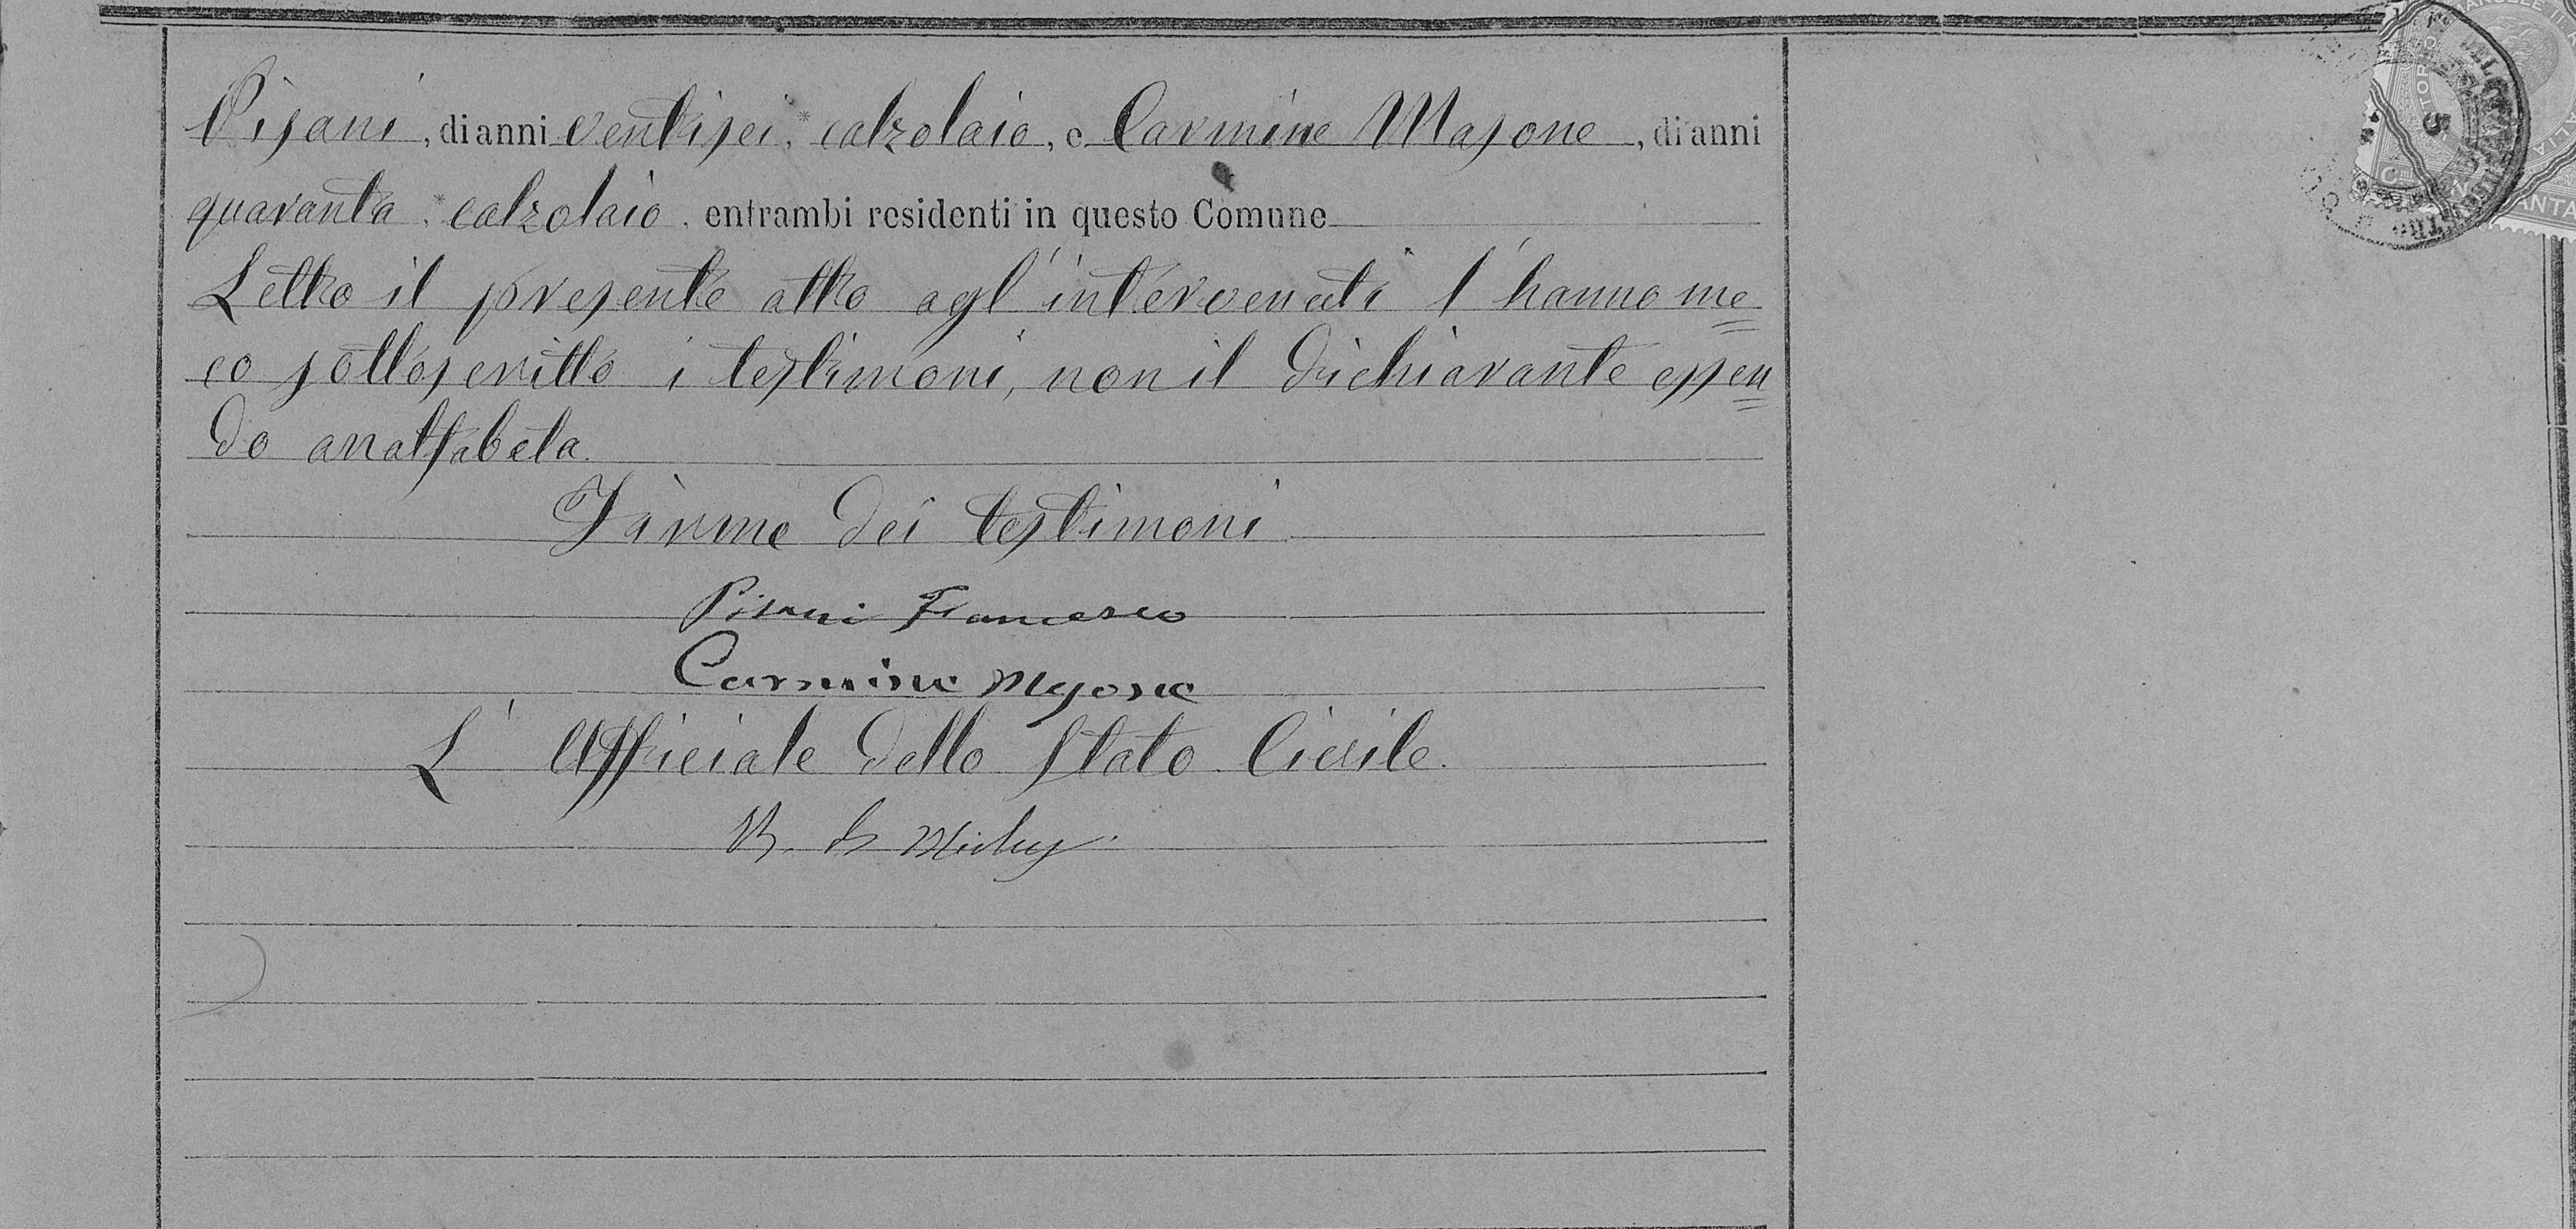 Pisani, di anni ventisei, calzolaio, e Carmine Masone, di anni
quaranta, calzolaio, entrambi residenti in questo Comune
Letto il presente atto agl'intervenuti l'hanno me
co sottoscritto i testimoni, non il dichiarante essen
do analfabeta.
Firme dei testimoni
Pisani Francesco
Carmine Masone
L'Ufficiale dello Stato Civile.